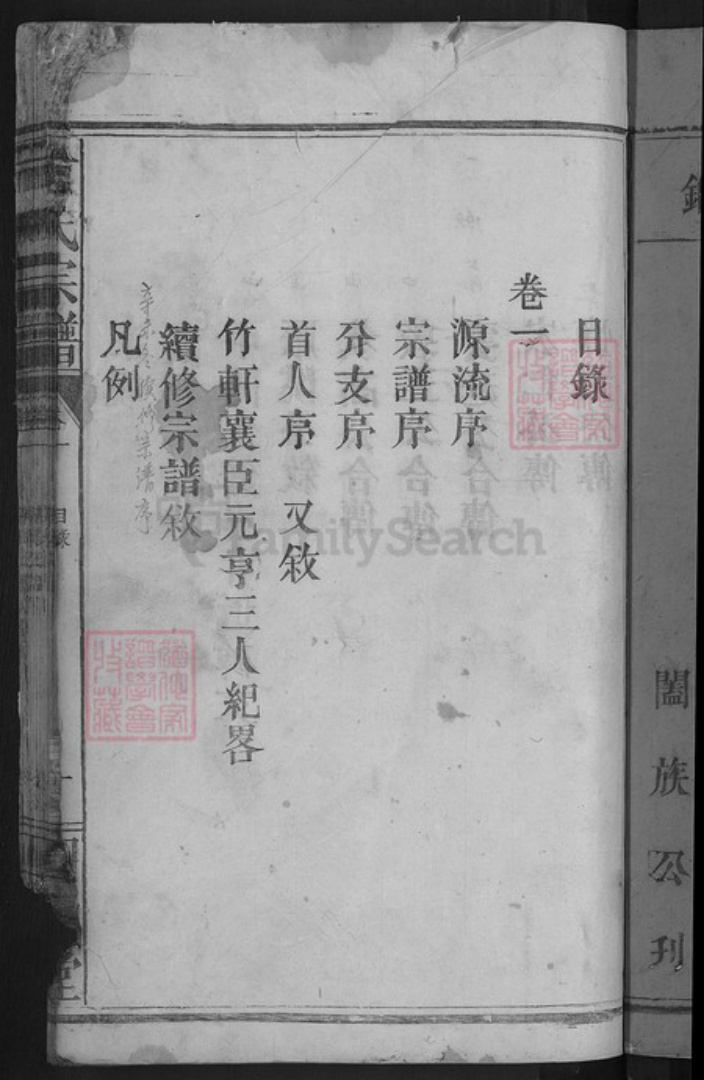 闔族公刊
目錄
卷一
源流序
宗譜序
分支序
首人序 又敘
竹軒襄臣元亨三人紀畧
續修宗譜敘
宗譜序
凡例
氏宗譜
卷一
目錄
一
堂
FamilySearch